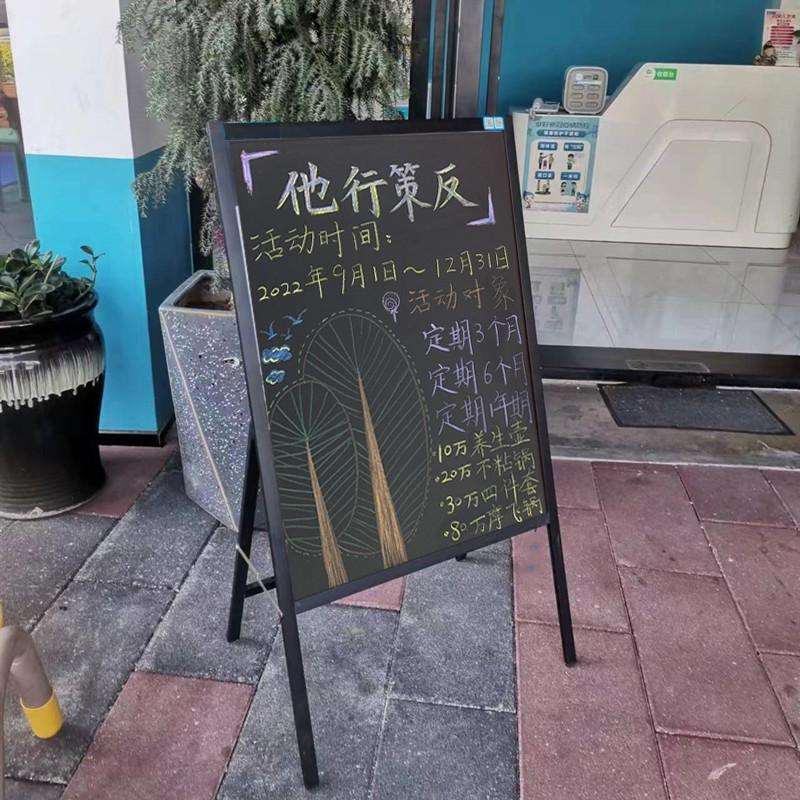 他行策反
活动时间:
2022年9月1日~12月31日
活动对象
定期3个月
定期6个月
定期1年期
·10万养生壶
·20万不粘锅
·30万四件套
·80万荷飞锅